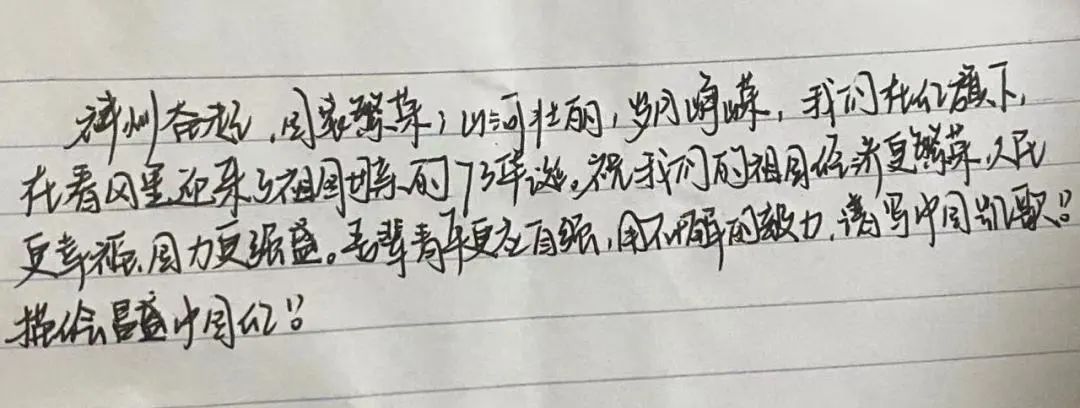 神州奋起,国家繁荣;山河壮丽,岁月峥嵘,我们在红旗下,
在春风里迎来了祖国母亲的73华诞。祝我们的祖国经济更繁荣,人民
更幸福,国力更强盛。吾辈青年更应自强,用不懈的毅力,谱写中国凯歌!
描绘昌盛中国红!